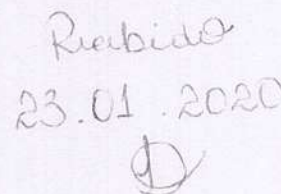 Recibido
23.01.2020